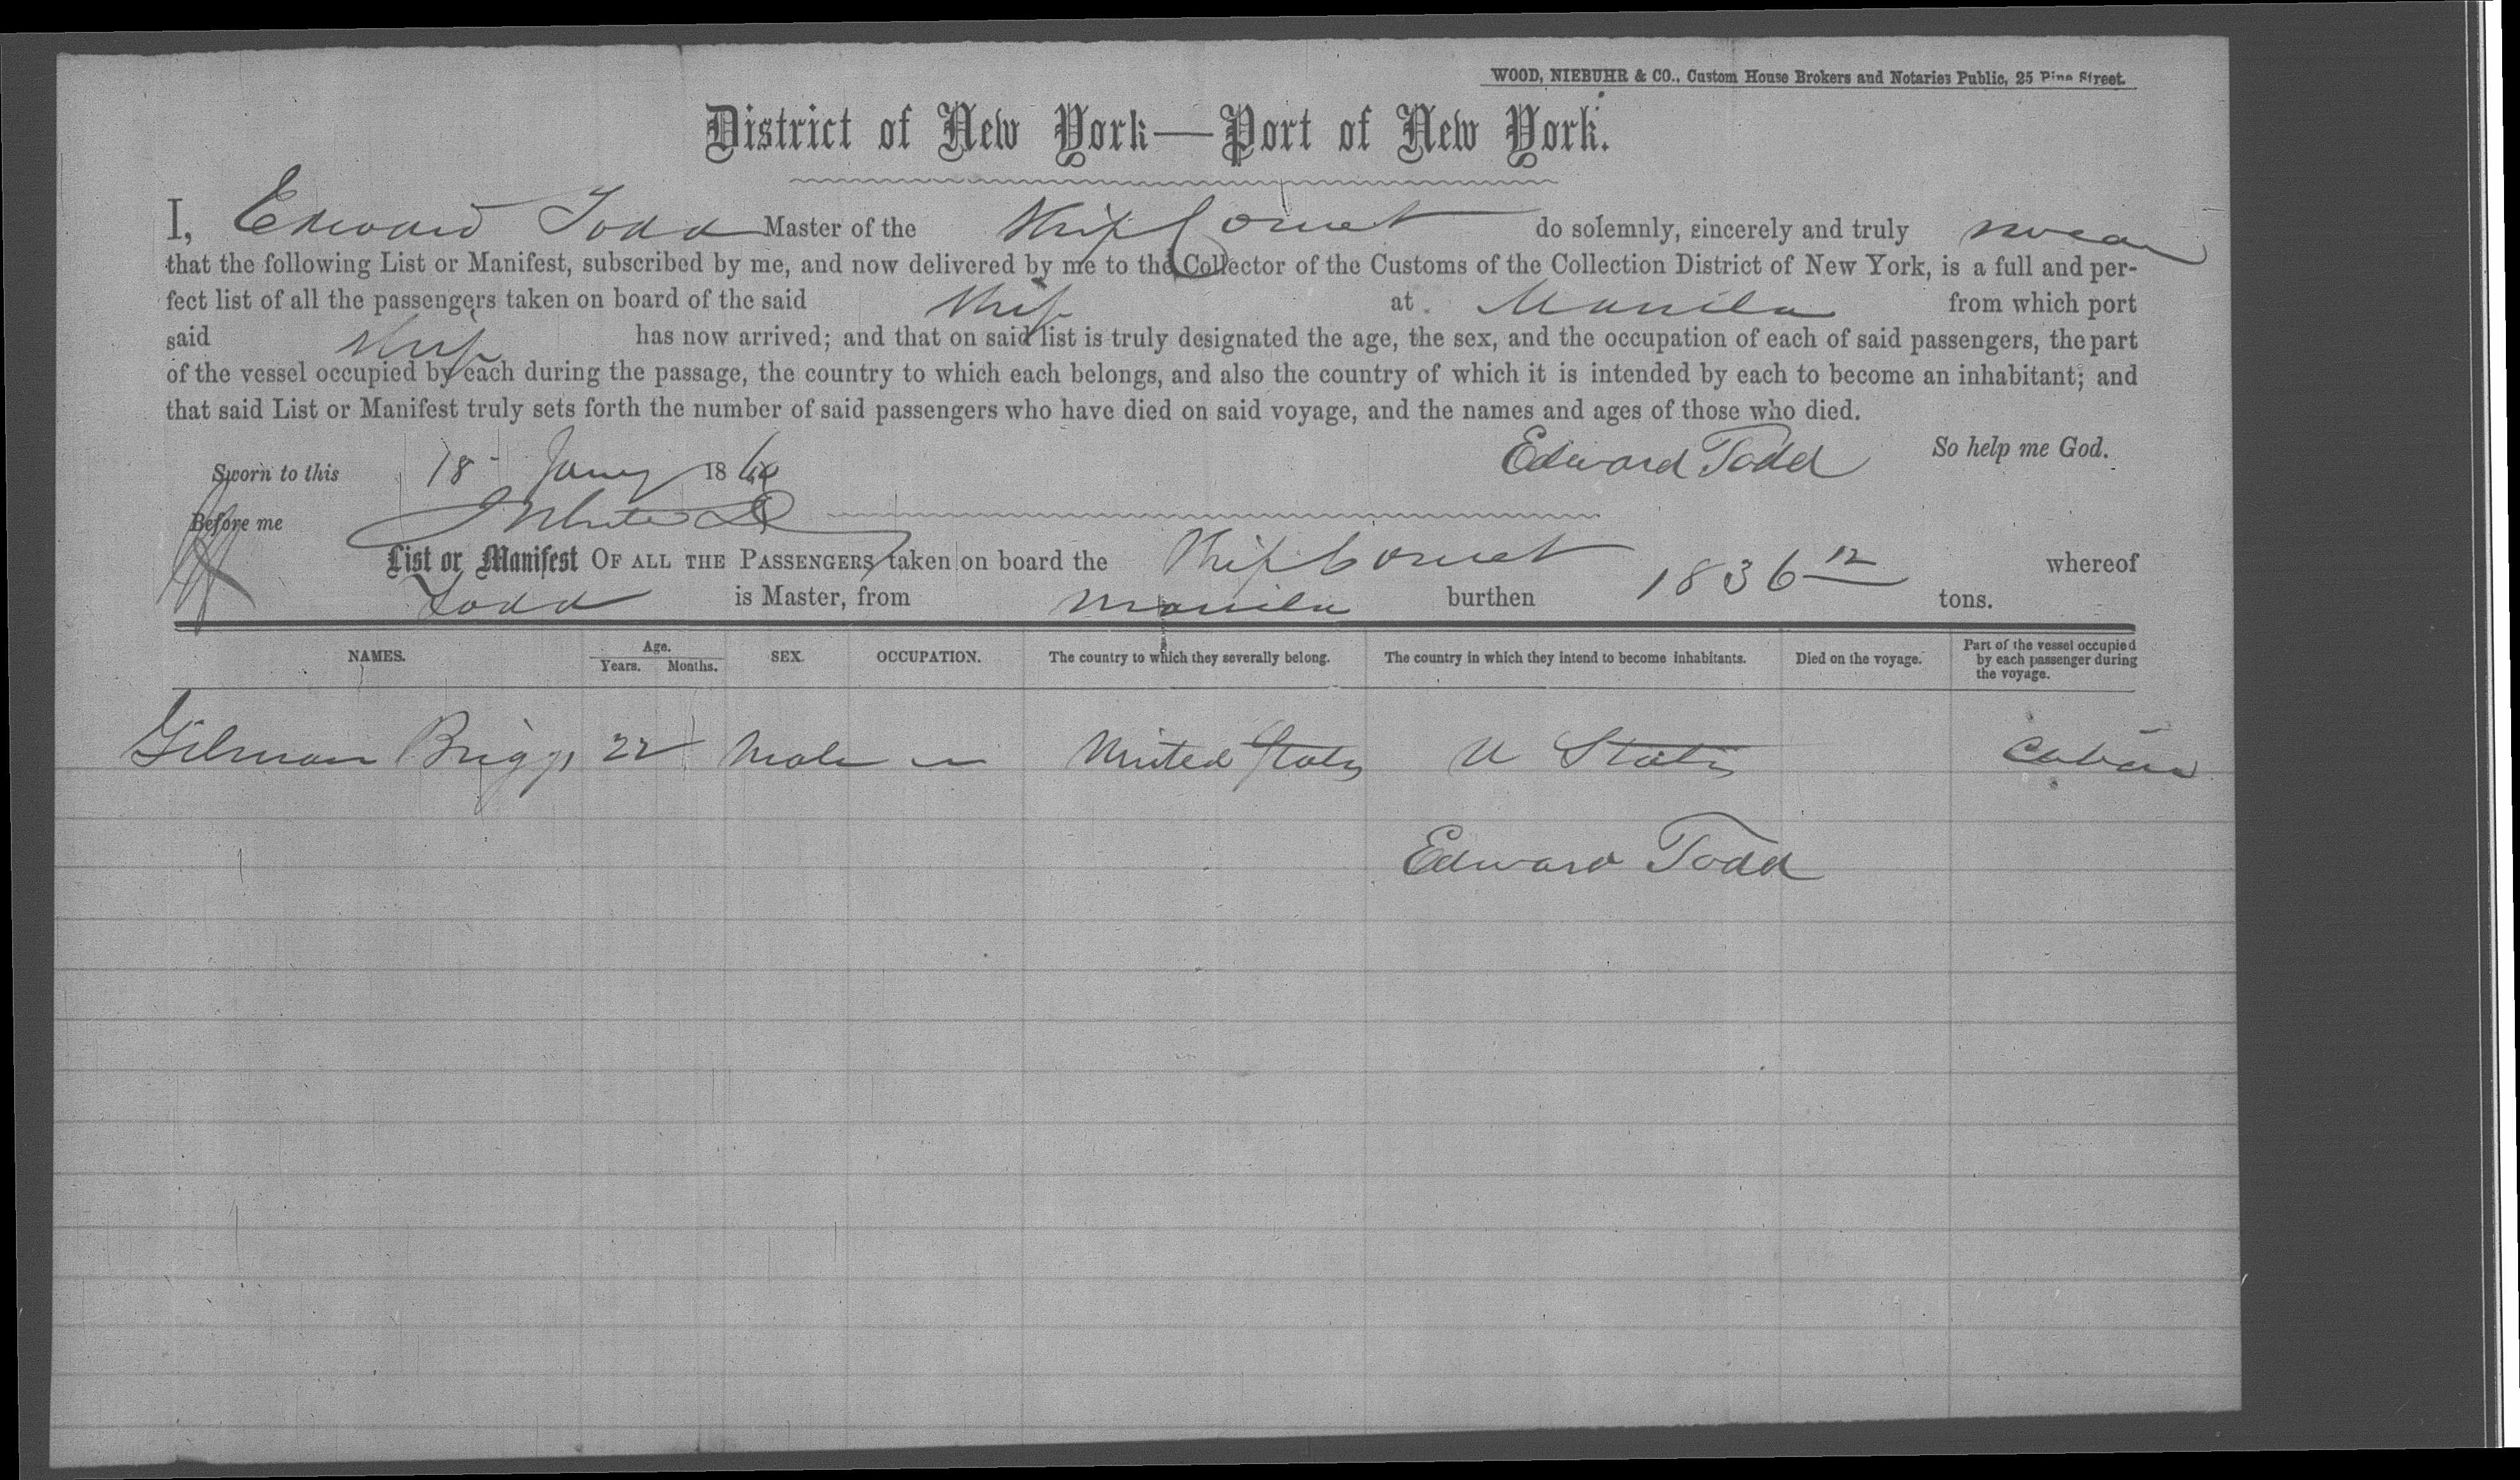 WOOD, NIEBUHR & CO., Custom House Brokers and Notaries Public, 25 Pine Street.
District of New York—Port of New York.
I, Edward Todd Master of the Ship Comet do solemnly, sincerely and truly swear
that the following List or Manifest, subscribed by me, and now delivered by me to the Collector of the Customs of the Collection District of New York, is a full and per-
fect list of all the passengers taken on board of the said Ship at Manila from which port
said Ship has now arrived; and that on said list is truly designated the age, the sex, and the occupation of each of said passengers, the part
of the vessel occupied by each during the passage, the country to which each belongs, and also the country of which it is intended by each to become an inhabitant; and
that said List or Manifest truly sets forth the number of said passengers who have died on said voyage, and the names and ages of those who died.
Edward Todd So help me God.
Sworn to this 18 Jany 186
Before me
List or Manifest OF ALL THE PASSENGERS taken on board the Ship Comet whereof
Todd is Master, from Manila burthen 1836 12 tons.
NAMES. Age. Years. Months. SEX. OCCUPATION. The country to which they severally belong. The country in which they intend to become inhabitants. Died on the voyage. Part of the vessel occupied by each passenger during the voyage.
Gilman Briggs 22 Male — United States U States Cabin
Edward Todd